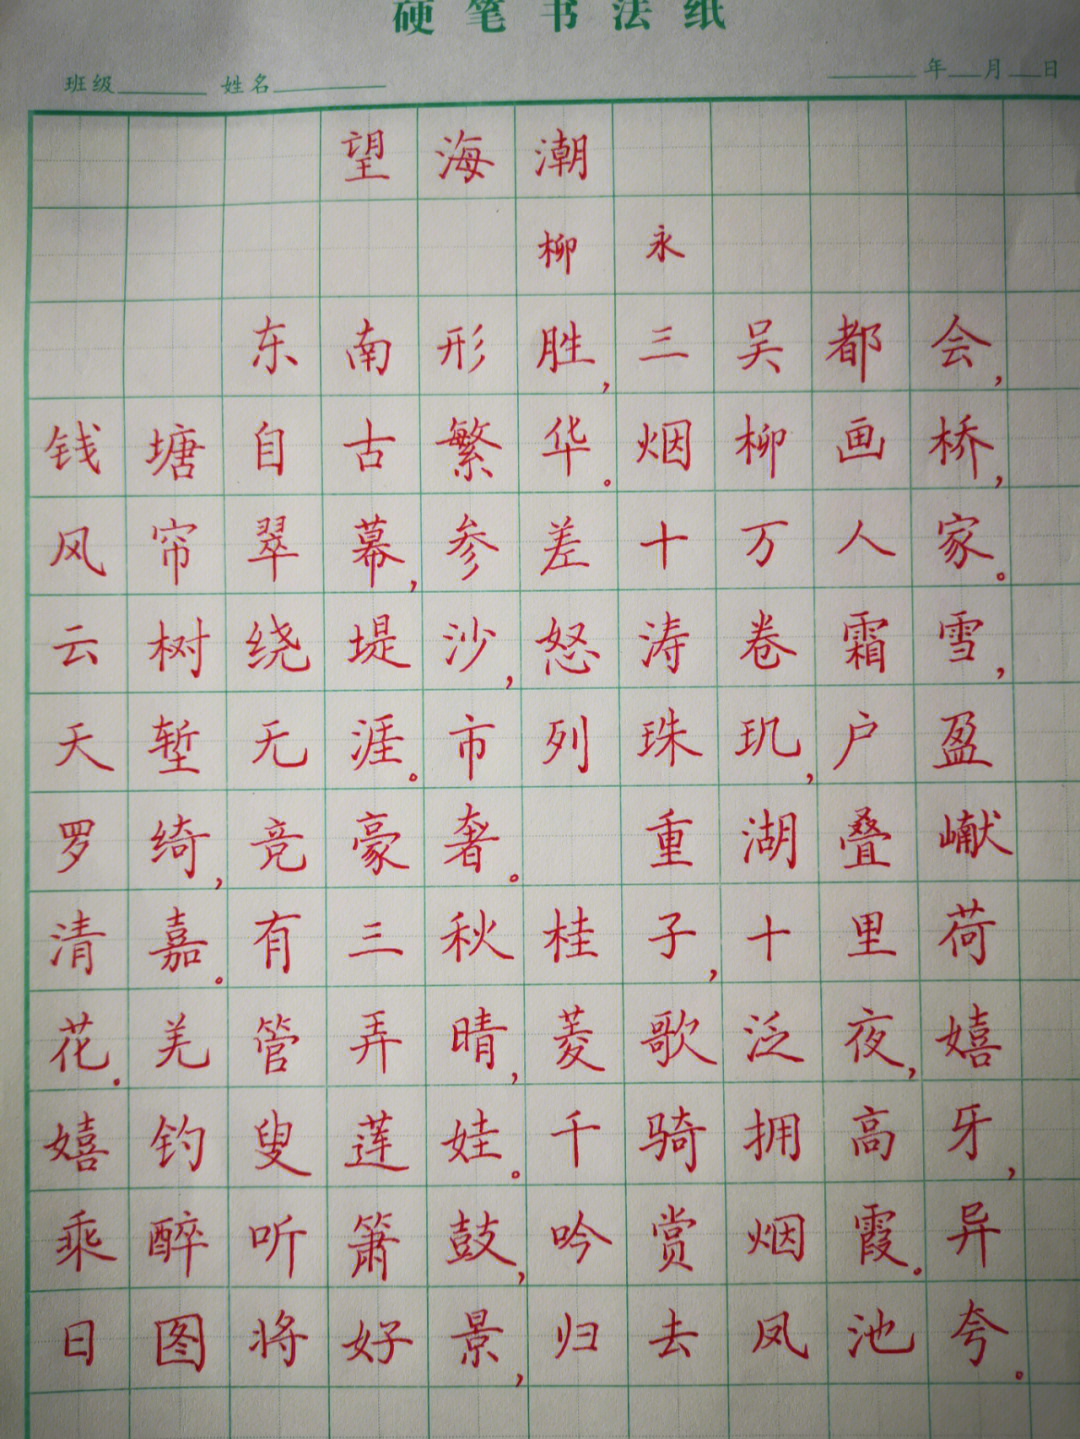 硬笔书法纸
班级 姓名 年 月 日
望海潮
柳永
东南形胜,三吴都会,
钱塘自古繁华。烟柳画桥,
风帘翠幕,参差十万人家。
云树绕堤沙,怒涛卷霜雪,
天堑无涯。市列珠玑,户盈
罗绮,竞豪奢。 重湖叠巘
清嘉。有三秋桂子,十里荷
花.羌管弄晴,菱歌泛夜,嬉
嬉钓叟莲娃。千骑拥高牙,
乘醉听箫鼓,吟赏烟霞。异
日图将好景,归去凤池夸。